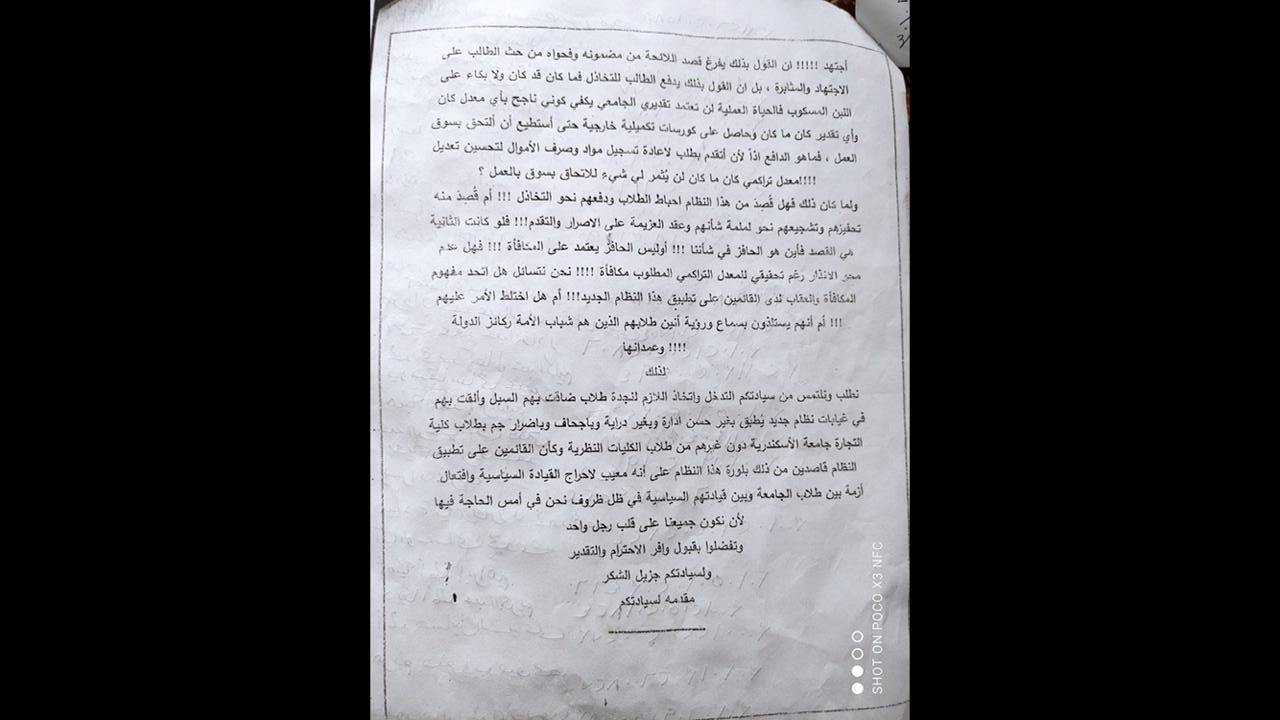 أجتهد !!!!! ان القول بذلك يفرغ قصد اللائحة من مضمونه وفحواه من حث الطالب على
الاجتهاد والمثابرة ، بل ان القول بذلك يدفع الطالب للتخاذل فما كان قد كان ولا بكاء على
اللبن المسكوب فالحياة العملية لن تعتمد تقديري الجامعي يكفي كوني ناجح بأي معدل كان
وأي تقدير كان ما كان وحاصل على كورسات تكميلية خارجية حتى أستطيع أن ألتحق بسوق
العمل ، فماهو الدافع اذاً لأن أتقدم بطلب لاعادة تسجيل مواد وصرف الأموال لتحسين تعديل
!!!!معدل تراكمي كان ما كان لن يُثمر لي شيءٍ للاتحاق بسوق بالعمل ؟
ولما كان ذلك فهل قُصِدَ من هذا النظام احباط الطلاب ودفعهم نحو التخاذل !!! أم قُصِدَ منه
تحفيزهم وتشجيعهم نحو لملمة شأنهم وعقد العزيمة على الاصرار والتقدم!!! فلو كانت الثانية
هي القصد فأين هو الحافز في شأننا !!! أوليس الحافزُ يعتمد على المكافأة !!! فهل عدم
محو الانذار رغم تحقيقي للمعدل التراكمي المطلوب مكافأة !!!! نحن نتسائل هل اتحد مفهوم
المكافأة والعقاب لدى القائمين على تطبيق هذا النظام الجديد!!! أم هل اختلط الأمر عليهم
!!! أم أنهم يستلذون بسماع ورؤية أنين طلابهم الذين هم شباب الأمة ركائز الدولة
!!!! وعمدانها
لذلك
نطلب ونلتمس من سيادتكم التدخل واتخاذ اللازم لنجدة طلاب ضاقت بهم السبل وألقت بهم
في غيابات نظام جديد يُطبق بغير حسن ادارة وبغير دراية وباجحاف وباضرار جم بطلاب كلية
التجارة جامعة الأسكندرية دون غيرهم من طلاب الكليات النظرية وكأن القائمين على تطبيق
النظام قاصدين من ذلك بلورة هذا النظام على أنه معيب لاحراج القيادة السياسية وافتعال
أزمة بين طلاب الجامعة وبين قيادتهم السياسية في ظل ظروف نحن في أمس الحاجة فيها
لأن نكون جميعنا على قلب رجل واحد
وتفضلوا بقبول وافر الاحترام والتقدير
ولسيادتكم جزيل الشكر
مقدمه لسيادتكم
SHOT ON POCO X3 NFC